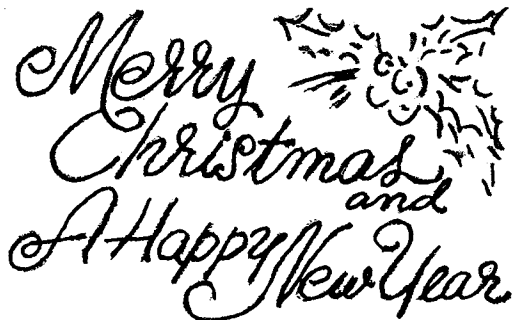 Merry
Christmas
and
A Happy
New Year